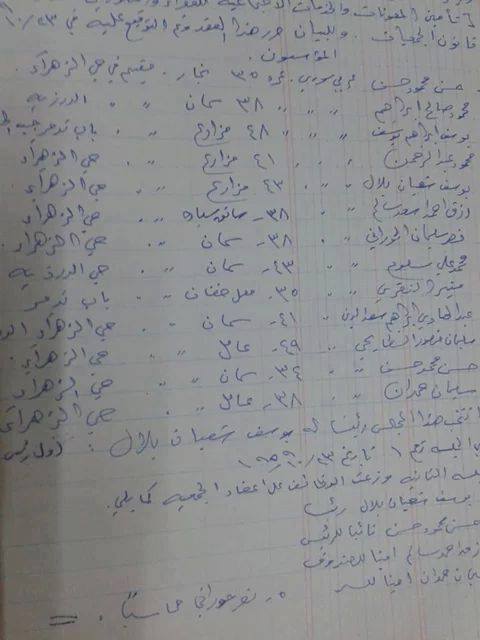 تأمين المعونات والخدمات الاجتماعية للفقراء
قانون الجمعيات . وللبيان حرر هذا العقد وتم التوقيع عليه في ٢٣ / ١٠
المؤسسون
حسن محمود حسن عربي سوري عمره ٣٥ نجار . مقيم في حي الزهراء
محمد صالح ابراهيم " " " ٣٨ سمان " " الدرزية
يوسف ابراهيم يوسف " " " ٤٨ مزارع " " باب تدمر
محمد عبد الرحمن " " " ٤١ مزارع " " حي الزهراء
يوسف شعبان بلال " " ٤٣ مزارع " " حي الزهراء
رزق احمد سالم " " ٣٨ " " حي الزهراء
نصر سليمان الحوراني " " ٣٨ سمان " " حي الزهراء
محمد علي سلوم " " ٤٣ سمان " " حي الدرزية
منير " " ٣٥ " " باب تدمر
عبد الهادي ابراهيم " ٤١ سمان " حي الزهراء
سليمان منصور " " ٤٩ عامل " " حي الزهراء
حسن محمد حسن " " ٣٤ سمان " " حي الزهراء
سليمان حمدان " " ٣٨ عامل " " حي الزهراء
انتخب هذا المجلس رئيسا له يوسف شعبان بلال : اول رئيس
الجلسة رقم ١ تاريخ
الجلسة الثانية وزعت الوظائف على اعضاء الجمعية كما يلي
يوسف شعبان بلال رئيسا
حسن محمود حسن نائبا للرئيس
رزق احمد سالم امينا للصندوق
سليمان حمدان امينا للسر
٥ - نصر حوراني محاسبا .